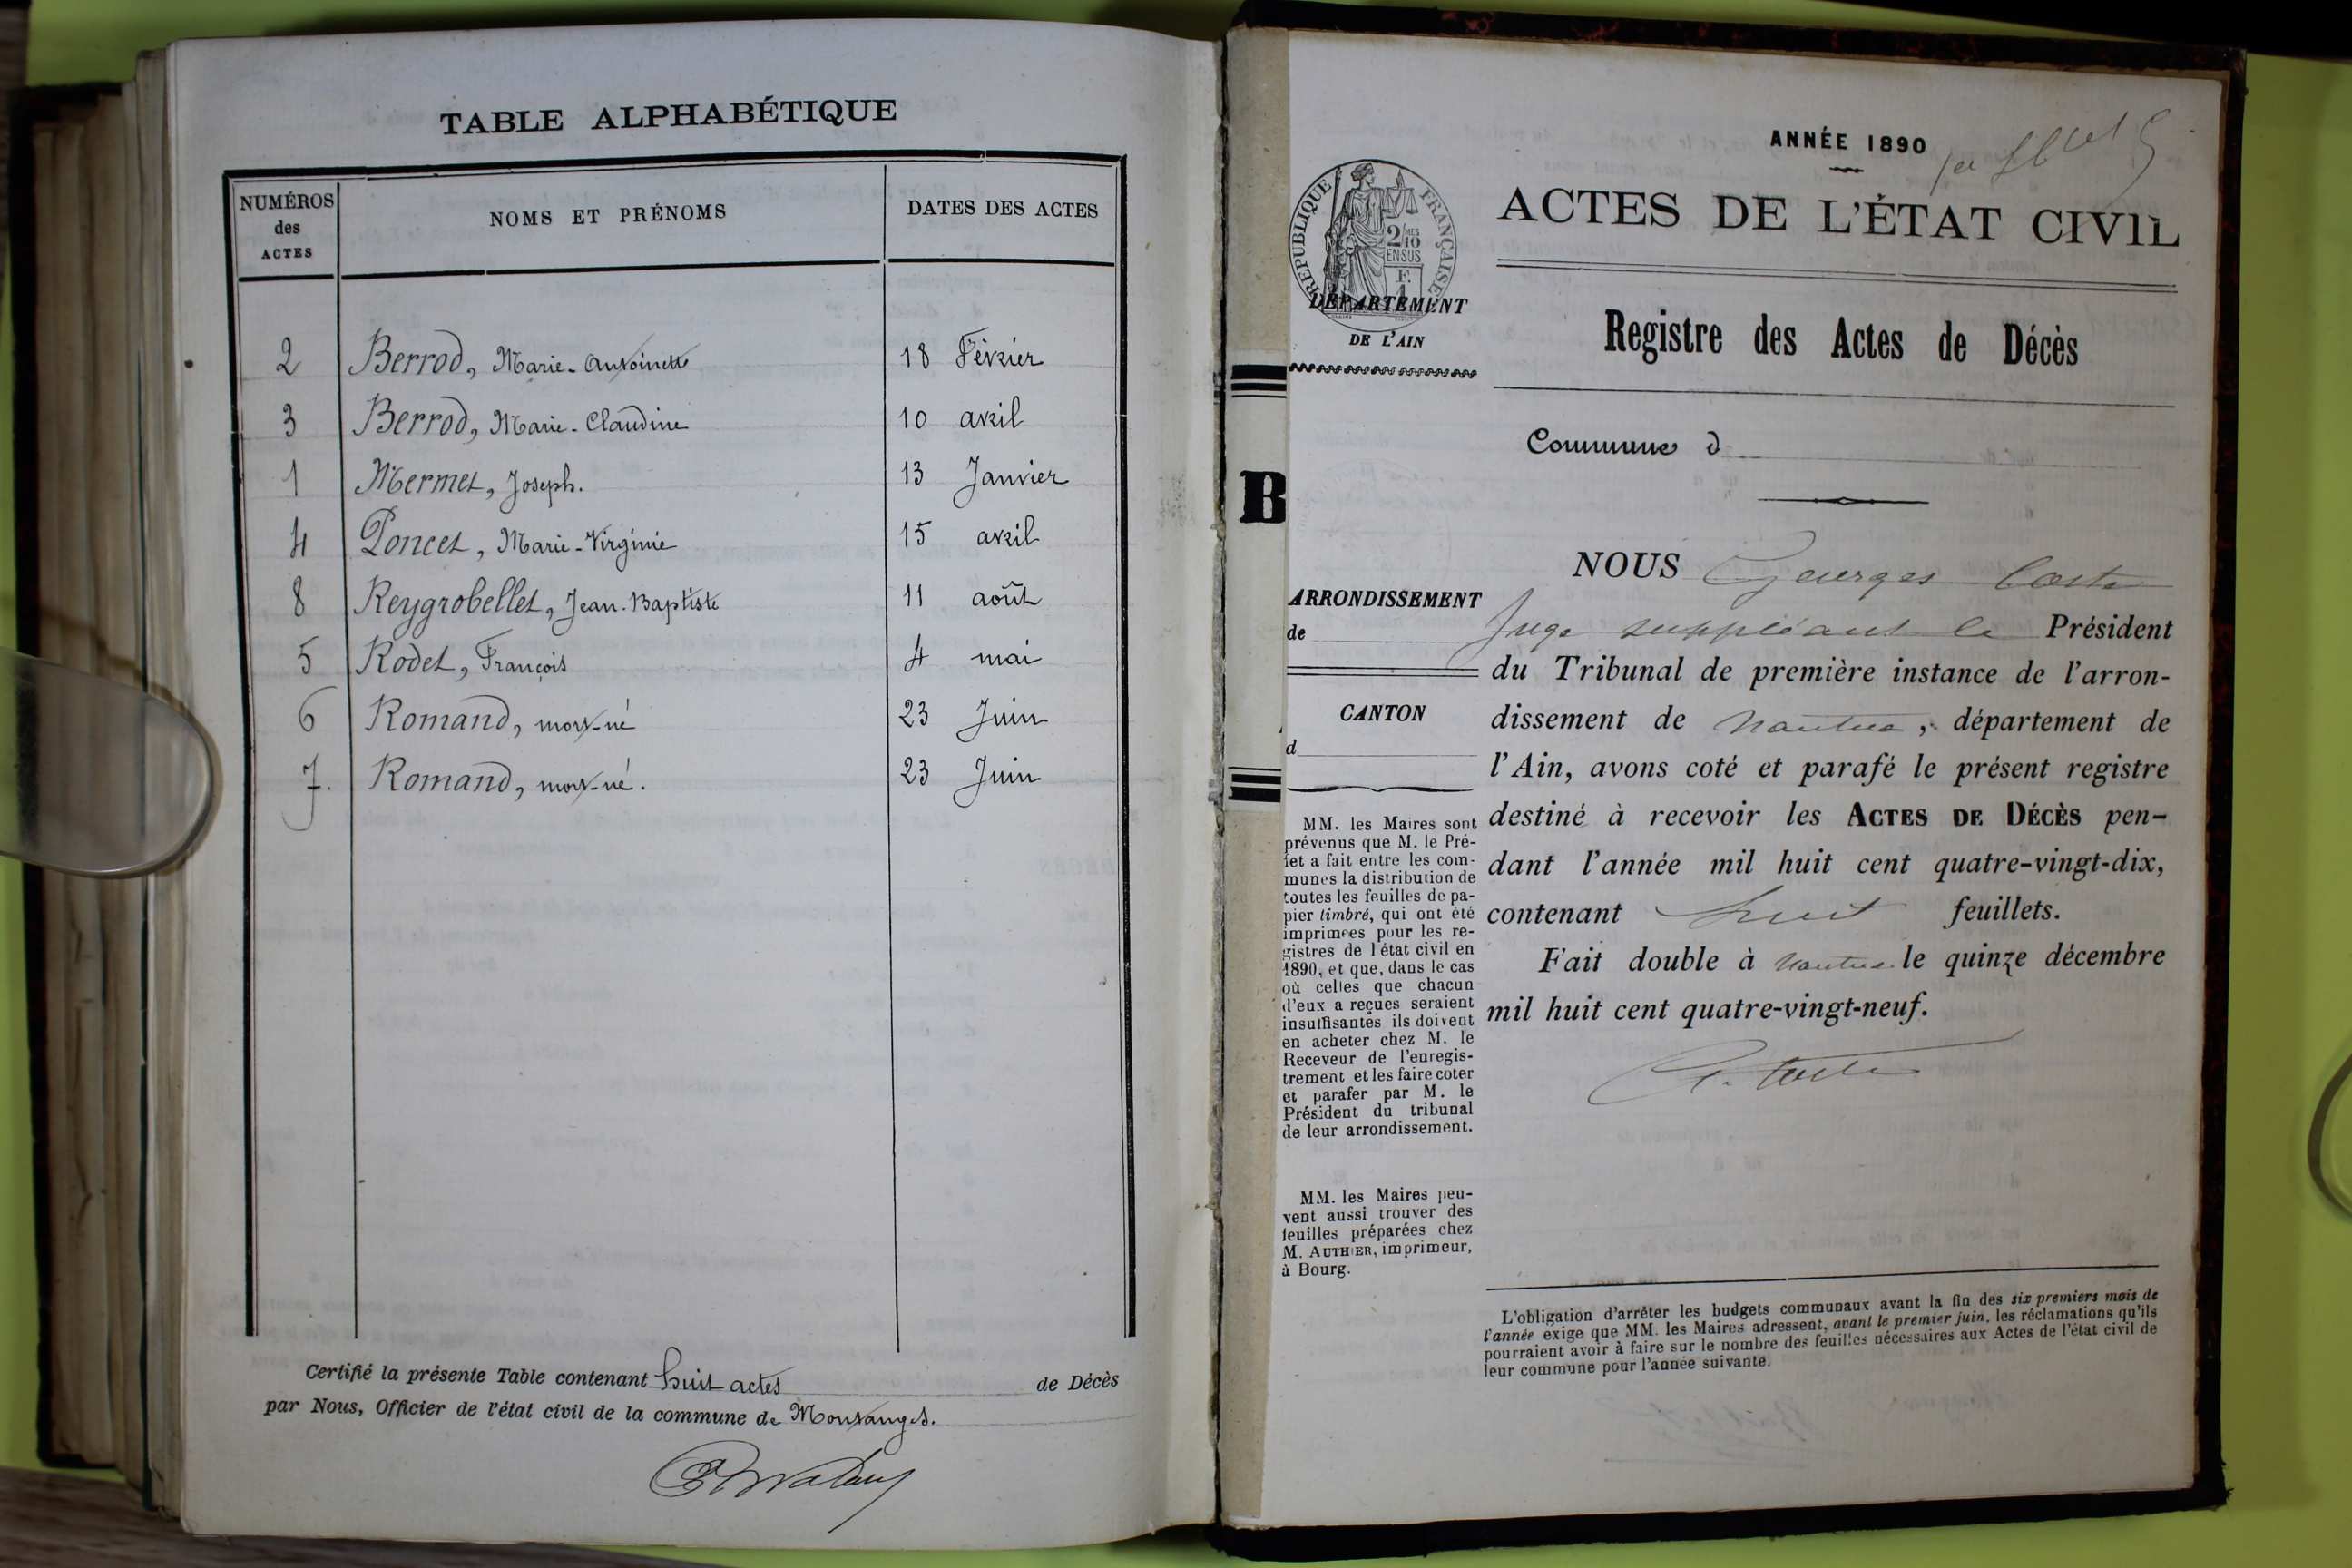 TABLE ALPHABÉTIQUE
NUMÉROS
des
ACTES
NOMS ET PRÉNOMS
DATES DES ACTES
2 Berrod, Marie-Antoinette 18 Février
3 Berrod, Marie-Claudine 10 avril
1 Mermet, Joseph. 13 Janvier
4 Poncet, Marie-Virginie 15 avril
8 Reygrobellet, Jean-Baptiste 11 août
5 Rodet, François 4 mai
6 Romand, mort-né 23 Juin
7. Romand, mort-né. 23 Juin
Certifié la présente Table contenant huit actes de Décès
par Nous, Officier de l'état civil de la commune de Montanges.
B
RÉPUBLIQUE FRANÇAISE
2/10MES
EN SUS
F.
DÉPARTEMENT
DE L'AIN
ARRONDISSEMENT
de
CANTON
d
MM. les Maires sont
prévenus que M. le Pré-
fet a fait entre les com-
munes la distribution de
toutes les feuilles de pa-
pier timbré, qui ont été
imprimées pour les re-
gistres de l'état civil en
1890, et que, dans le cas
où celles que chacun
d'eux a reçues seraient
insuffisantes ils doivent
en acheter chez M. le
Receveur de l'enregis-
trement et les faire coter
et parafer par M. le
Président du tribunal
de leur arrondissement.
MM. les Maires peu-
vent aussi trouver des
feuilles préparées chez
M. AUTHIER, imprimeur,
à Bourg.
ANNÉE 1890
ACTES DE L'ÉTAT CIVIL
Registre des Actes de Décès
Commune d
NOUS Georges Coste
Juge suppléant le Président
du Tribunal de première instance de l'arron-
dissement de Nantua, département de
l'Ain, avons coté et parafé le présent registre
destiné à recevoir les ACTES DE DÉCÈS pen-
dant l'année mil huit cent quatre-vingt-dix,
contenant huit feuillets.
Fait double à Nantua le quinze décembre
mil huit cent quatre-vingt-neuf.
G. Coste
L'obligation d'arrêter les budgets communaux avant la fin des six premiers mois de
l'année exige que MM. les Maires adressent, avant le premier juin, les réclamations qu'ils
pourraient avoir à faire sur le nombre des feuilles nécessaires aux Actes de l'état civil de
leur commune pour l'année suivante.